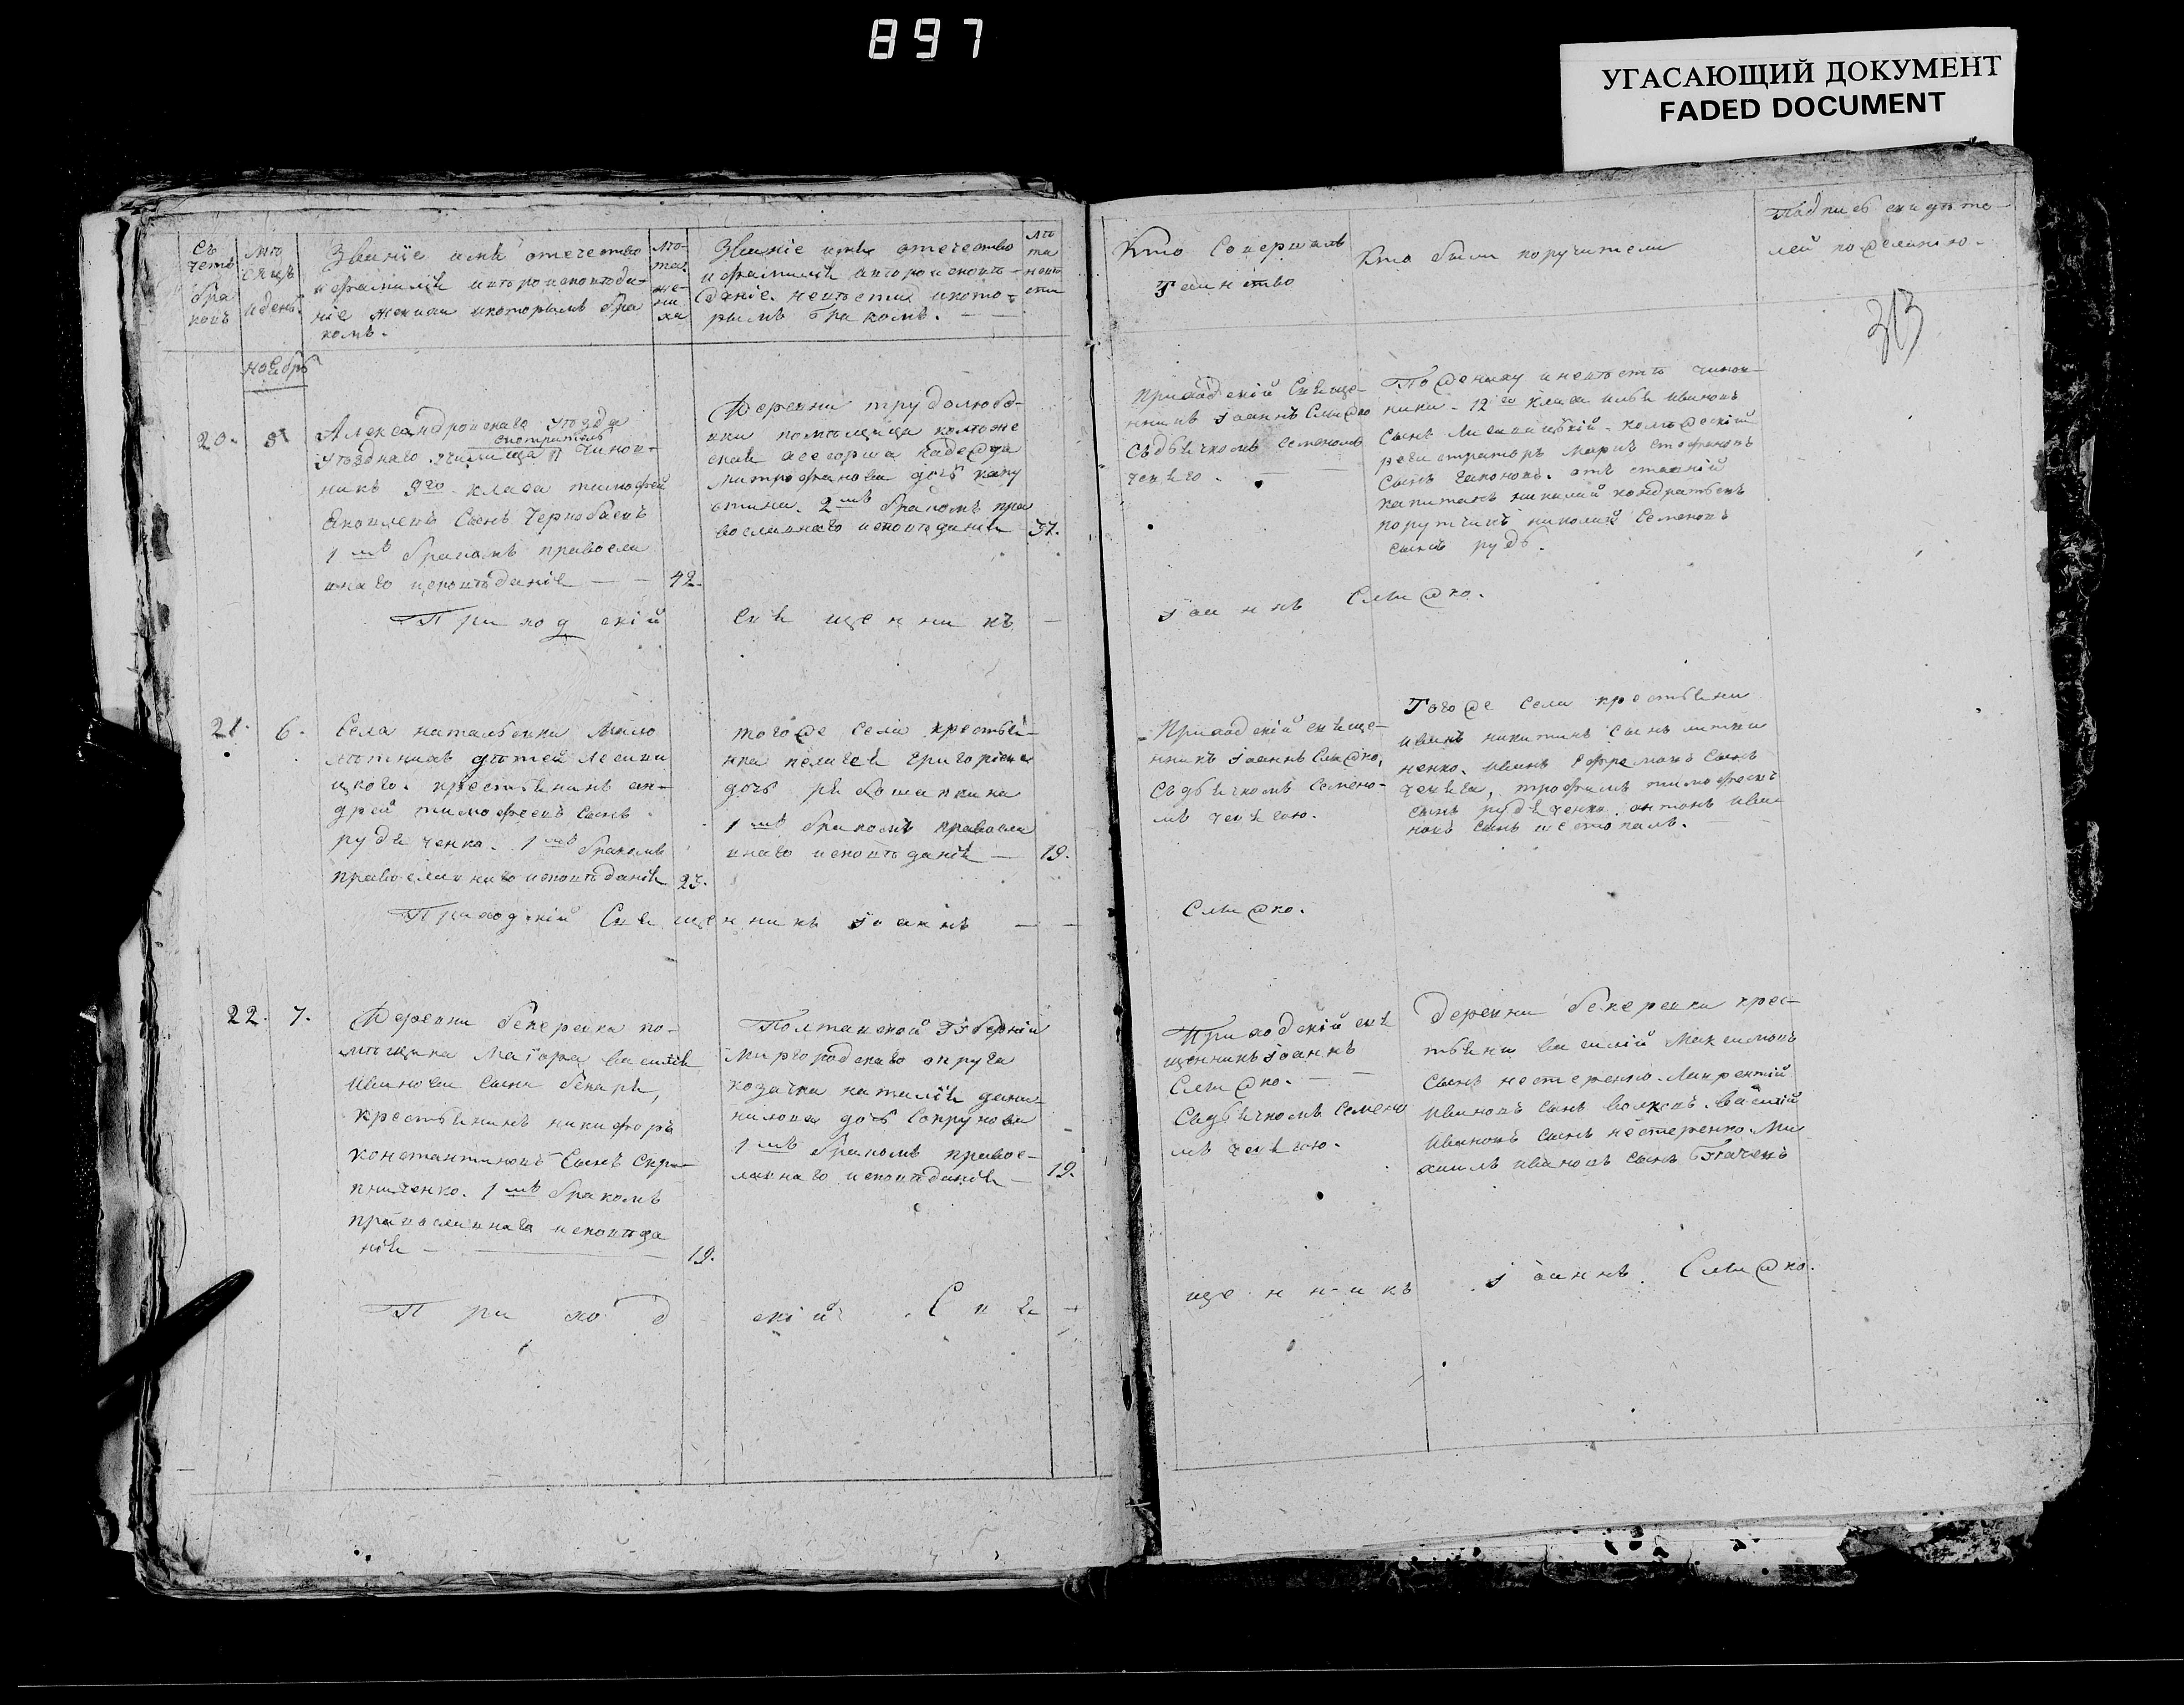 897
УГАСАЮЩИЙ ДОКУМЕНТ
FADED DOCUMENT
Счетъ браковъ
Мѣсяцъ и день
Званіе имя отечество
и фамилія и вѣроисповѣда-
ніе жениха и которымъ бра
комъ.
лѣта жениха
Званіе имя отечество
и фамилія и вѣроисповѣ-
даніе невѣсты и кото-
рымъ бракомъ.
лѣта невѣсты
Кто совершалъ
таинство
Кто были поручители
Подпись свидѣте-
лей по желанію.
313
ноябрь
20.
Александровскаго уѣзда
смотритель
уѣзднаго училища чинов-
никъ 9го класа тимофей
Яковлевъ сынъ Чернобаевъ
1 мъ бракомъ правосла
внаго исповѣданія
42.
Деревни трудолюбо-
вки помѣщица коллеже
ская асесорша надежда
митрофанова дочь капу
стина. 2 мъ бракомъ пра
вославнаго исповѣданія
37.
Приходскій Свяще-
нникъ Іоаннъ Слижко
съ дьячкомъ Семеномъ
По жениху и невѣстѣ чинов-
ники 12го класа Иванъ
сынъ
регистраторъ Марко Стефановъ
сынъ отставной
капитанъ николай кондратьевъ
порутчикъ николай Семеновъ
сынъ рудь.
Приходскій священникъ
Іоаннъ Слижко.
21.
6.
Села натальевки мало
лѣтнихъ дѣтей Леони
цкого крестьянинъ ан-
дрей тимофеевъ сынъ
рудяченко. 1 мъ бракомъ
православнаго исповѣданія
23.
тогоже села крестья-
нка пелагея григоріева
дочь рябошапкина
1 мъ бракомъ правосла
внаго исповѣданія
19.
Приходскій свяще-
нникъ Іоаннъ Слижко,
съ дьячкомъ Семено-
мъ
Тогоже села крестьяни
иванъ никитинъ сынъ литви
ненко. иванъ Ефремовъ сынъ
трофимъ тимофеевъ
сынъ рудяченко антонъ ива
новъ сынъ
Приходскій Священникъ Іоаннъ
Слижко.
22.
7.
Деревни бекаревки по-
мѣщика Маіора василія
Иванова сына бекаря,
крестьянинъ никифоръ
константиновъ сынъ скри-
пниченко. 1 мъ бракомъ
православнаго исповѣда
нія
19.
Полтавской Губерніи
Миргородскаго округа
козачка наталія дани-
нилова дочь Сокрукова
1 мъ бракомъ правос-
лавнаго исповѣданія
19.
Приходскій свя
щенникъ Іоаннъ
Слижко.
Съ дьячкомъ Семено
мъ
Деревни бекаревки крес-
тьяни василій Максимовъ
сынъ нестеренко. Лаврентій
ивановъ сынъ волковъ. Василій
ивановъ сынъ нестеренко Ми
хаилъ ивановъ сынъ
Приходскій Свя
щенникъ Іоаннъ Слижко.